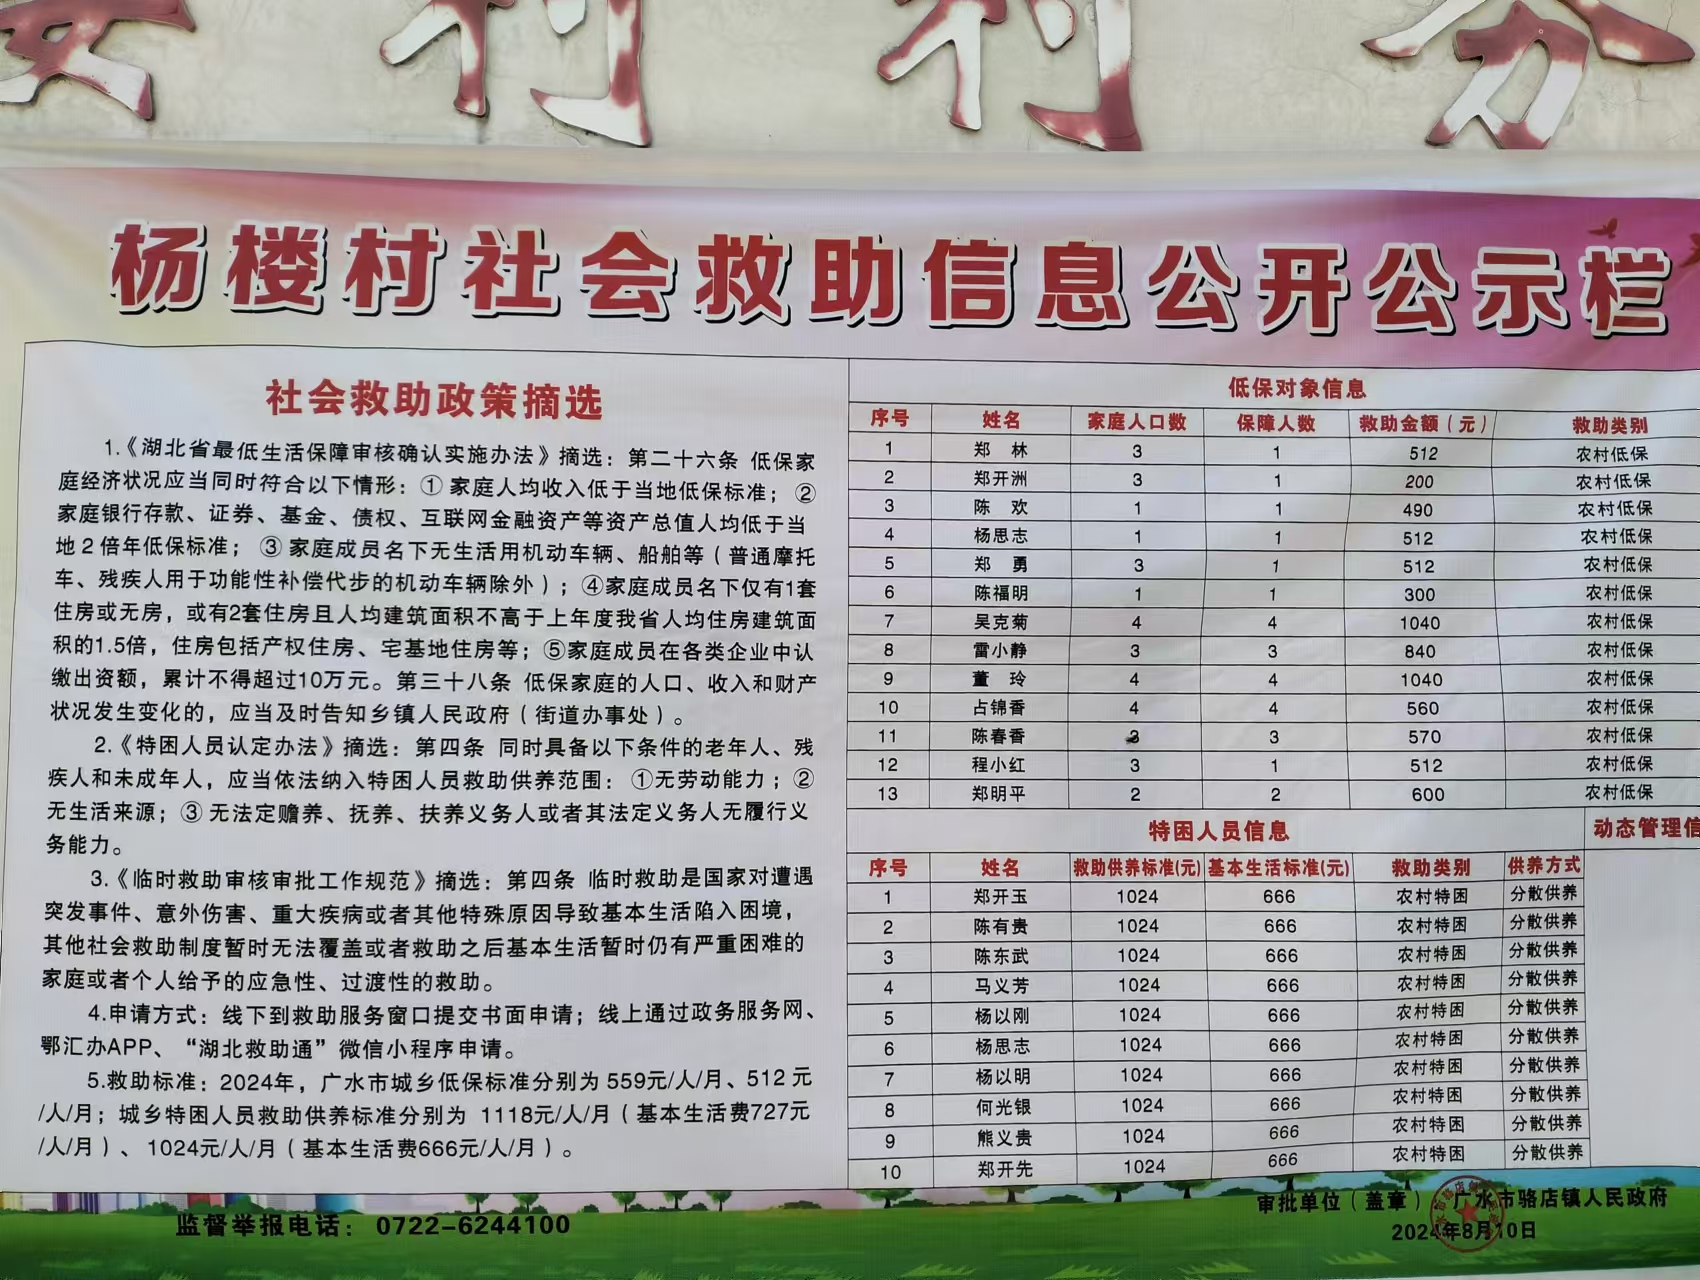 杨楼村社会救助信息公开公示栏
社会救助政策摘选
1.《湖北省最低生活保障审核确认实施办法》摘选：第二十六条 低保家
庭经济状况应当同时符合以下情形：① 家庭人均收入低于当地低保标准；②
家庭银行存款、证券、基金、债权、互联网金融资产等资产总值人均低于当
地 2 倍年低保标准； ③ 家庭成员名下无生活用机动车辆、船舶等（普通摩托
车、残疾人用于功能性补偿代步的机动车辆除外）；④家庭成员名下仅有1套
住房或无房，或有2套住房且人均建筑面积不高于上年度我省人均住房建筑面
积的1.5倍，住房包括产权住房、宅基地住房等；⑤家庭成员在各类企业中认
缴出资额，累计不得超过10万元。第三十八条 低保家庭的人口、收入和财产
状况发生变化的，应当及时告知乡镇人民政府（街道办事处）。
2.《特困人员认定办法》摘选：第四条 同时具备以下条件的老年人、残
疾人和未成年人，应当依法纳入特困人员救助供养范围：①无劳动能力；②
无生活来源；③ 无法定赡养、抚养、扶养义务人或者其法定义务人无履行义
务能力。
3.《临时救助审核审批工作规范》摘选：第四条 临时救助是国家对遭遇
突发事件、意外伤害、重大疾病或者其他特殊原因导致基本生活陷入困境，
其他社会救助制度暂时无法覆盖或者救助之后基本生活暂时仍有严重困难的
家庭或者个人给予的应急性、过渡性的救助。
4.申请方式：线下到救助服务窗口提交书面申请；线上通过政务服务网、
鄂汇办APP、“湖北救助通”微信小程序申请。
5.救助标准：2024年，广水市城乡低保标准分别为 559元/人/月、512 元
/人/月；城乡特困人员救助供养标准分别为 1118元/人/月（基本生活费727元
/人/月）、 1024元/人/月（基本生活费666元/人/月）。
监督举报电话： 0722-6244100
低保对象信息
序号 姓名 家庭人口数 保障人数 救助金额（元） 救助类别
1 郑 林 3 1 512 农村低保
2 郑开洲 3 1 200 农村低保
3 陈 欢 1 1 490 农村低保
4 杨思志 1 1 512 农村低保
5 郑 勇 3 1 512 农村低保
6 陈福明 1 1 300 农村低保
7 吴克菊 4 4 1040 农村低保
8 雷小静 3 3 840 农村低保
9 董 玲 4 4 1040 农村低保
10 占锦香 4 4 560 农村低保
11 陈春香 3 3 570 农村低保
12 程小红 3 1 512 农村低保
13 郑明平 2 2 600 农村低保
特困人员信息 动态管理信
序号 姓名 救助供养标准(元) 基本生活标准(元) 救助类别 供养方式
1 郑开玉 1024 666 农村特困 分散供养
2 陈有贵 1024 666 农村特困 分散供养
3 陈东武 1024 666 农村特困 分散供养
4 马义芳 1024 666 农村特困 分散供养
5 杨以刚 1024 666 农村特困 分散供养
6 杨思志 1024 666 农村特困 分散供养
7 杨以明 1024 666 农村特困 分散供养
8 何光银 1024 666 农村特困 分散供养
9 熊义贵 1024 666 农村特困 分散供养
10 郑开先 1024 666 农村特困 分散供养
审批单位（盖章） 广水市骆店镇人民政府
2024年8月10日